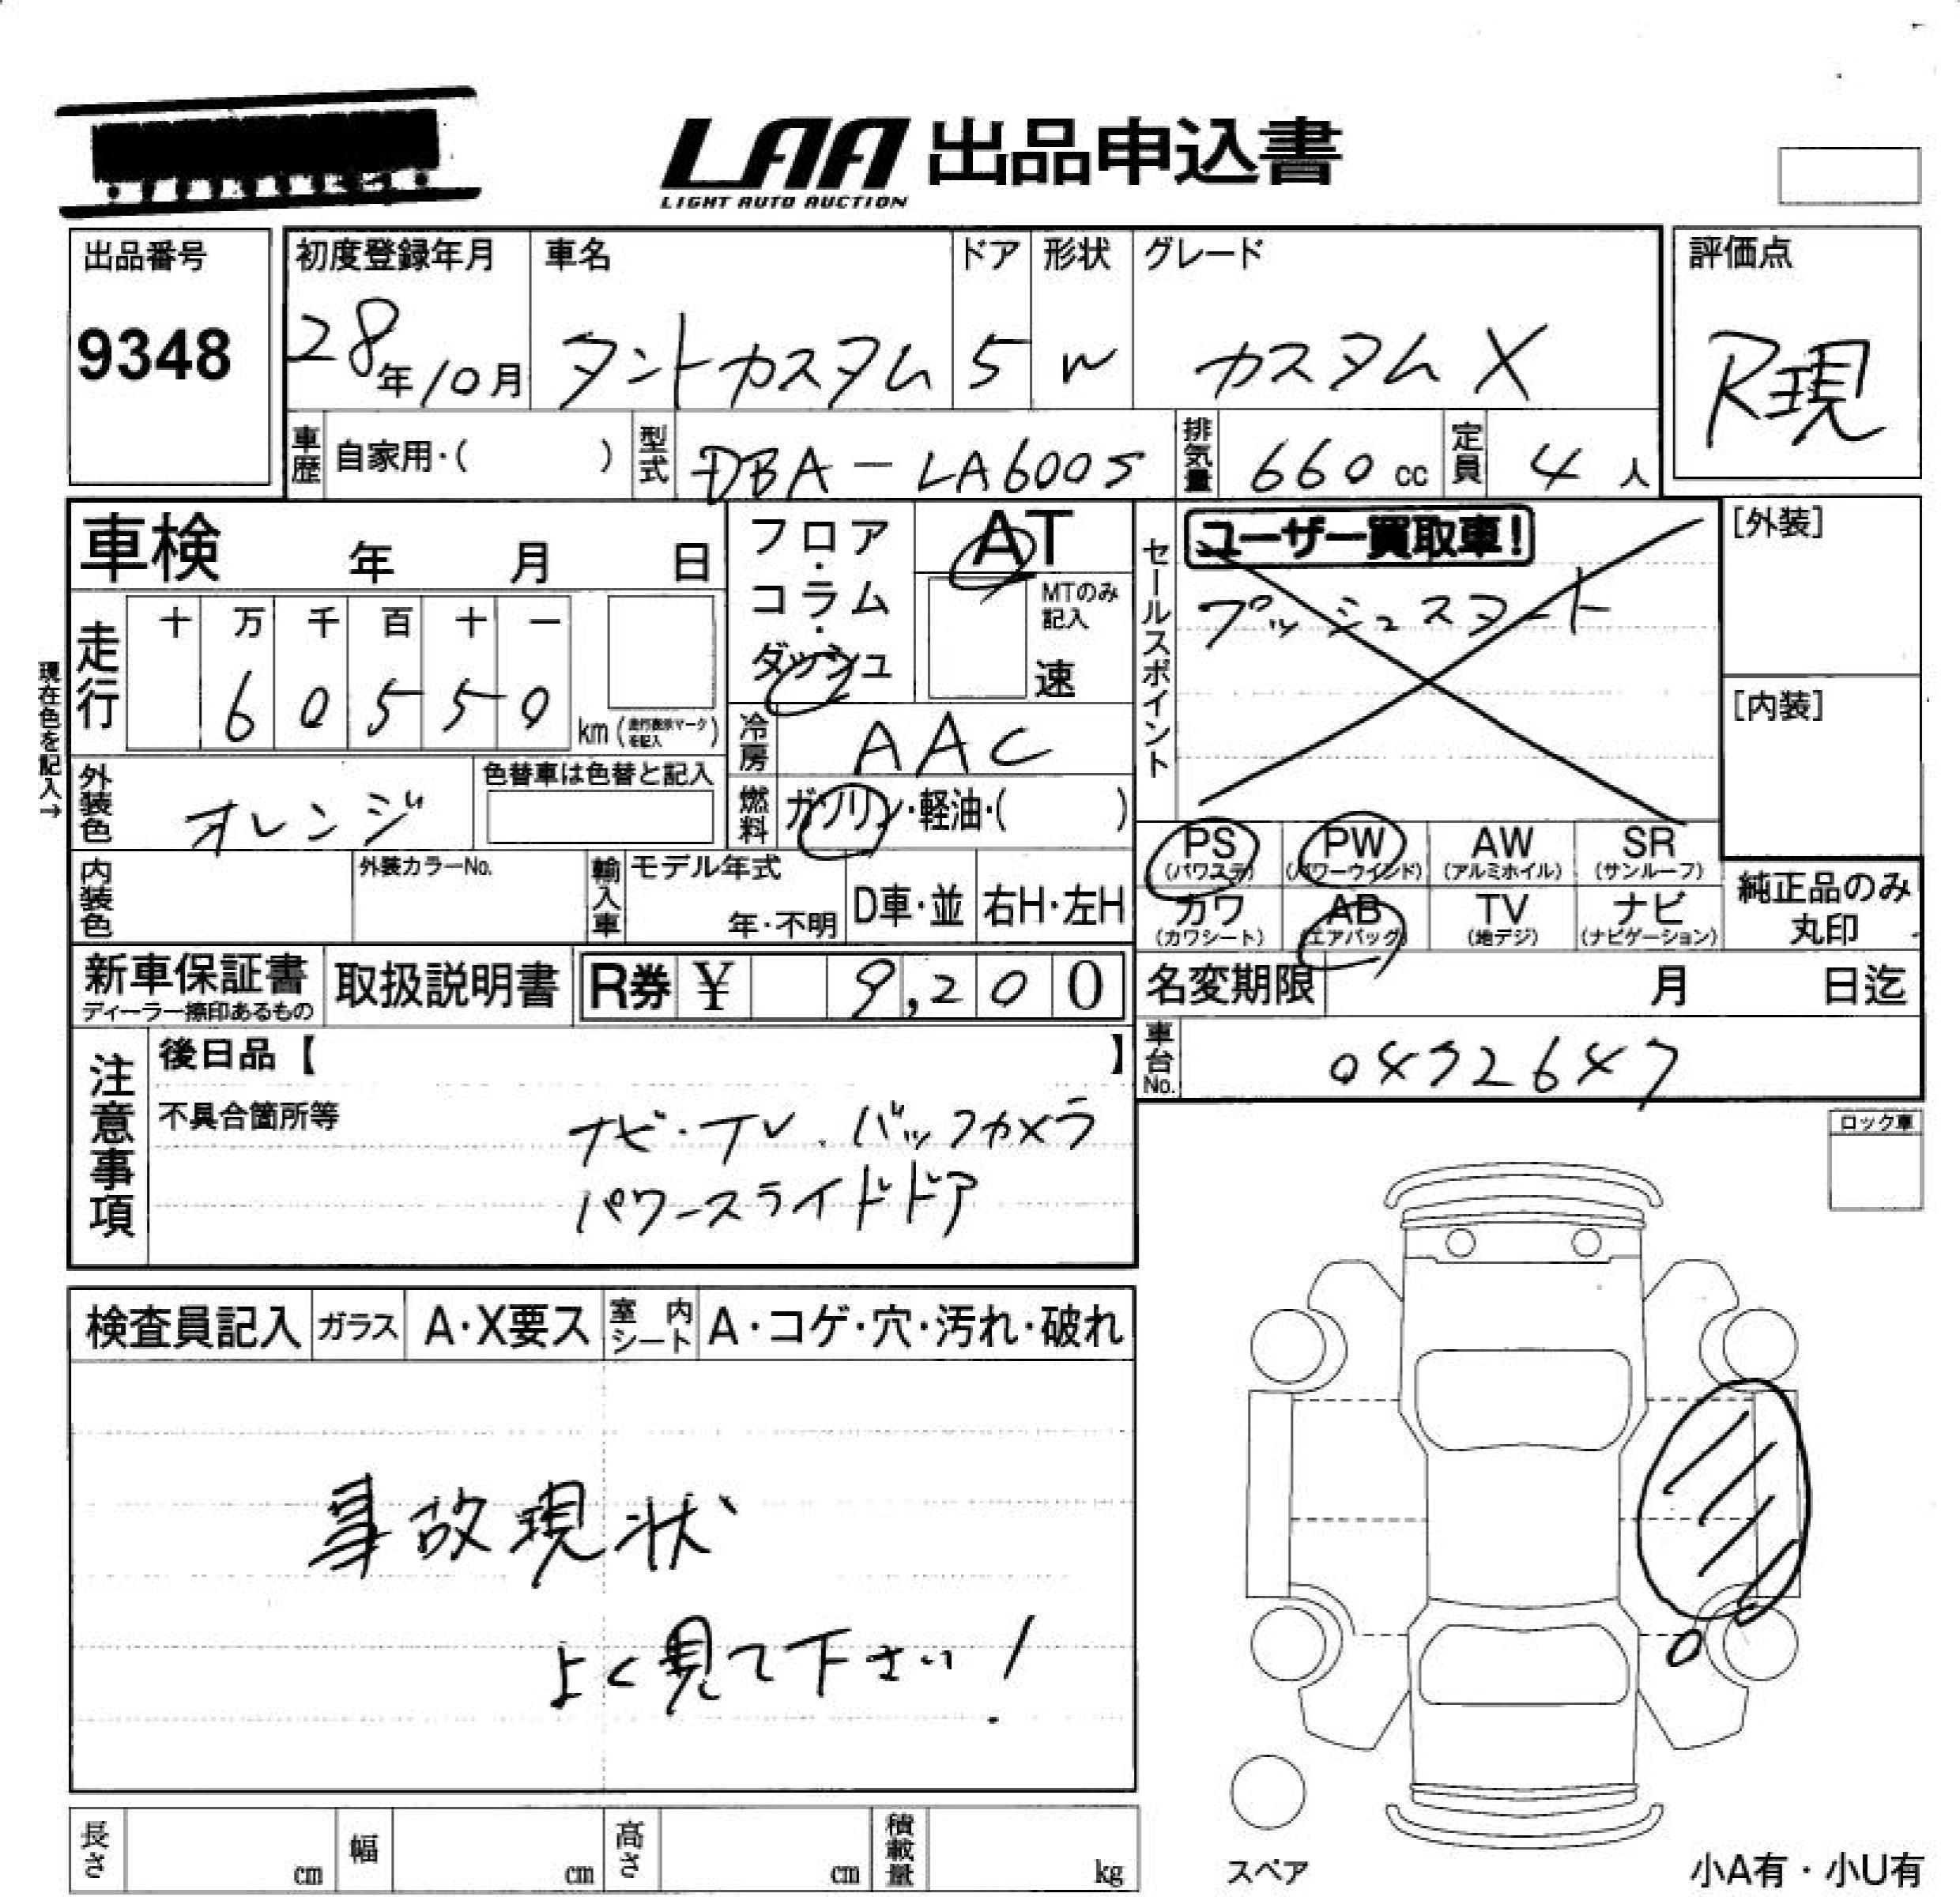 LAA 出品申込書
LIGHT AUTO AUCTION
出品番号
9348
初度登録年月
28年10月
車名
タントカスタム
ドア
5
形状
W
グレード
カスタムX
評価点
R現
車歴 自家用・( )
型式 DBA-LA600S
排気量 660cc
定員 4人
車検 年 月 日
フロア・コラム・ダッシュ
AT
MTのみ記入
速
セールスポイント
ユーザー買取車!
プッシュスタート
[外装]
[内装]
現在色を記入→
走行 十 万 千 百 十 一
6 0 5 5 0 km (走行表示マークを記入)
冷房 AAC
外装色 オレンジ
色替車は色替と記入
燃料 ガソリン・軽油・( )
PS (パワステ)
PW (パワーウインド)
AW (アルミホイル)
SR (サンルーフ)
カワ (カワシート)
AB (エアバッグ)
TV (地デジ)
ナビ (ナビゲーション)
純正品のみ丸印
内装色
外装カラーNo.
輸入車
モデル年式
年・不明
D車・並
右H・左H
新車保証書
ディーラー捺印あるもの
取扱説明書
R券 ¥ 9,200
名変期限 月 日迄
車台No.
注意事項
後日品【 】
不具合箇所等
ナビ・TV.バックカメラ
パワースライドドア
ロック車
検査員記入
ガラス A・X要ス
室内シート A・コゲ・穴・汚れ・破れ
事故現状
よく見て下さい!
長さ cm
幅 cm
高さ cm
積載量 kg
スペア
小A有・小U有